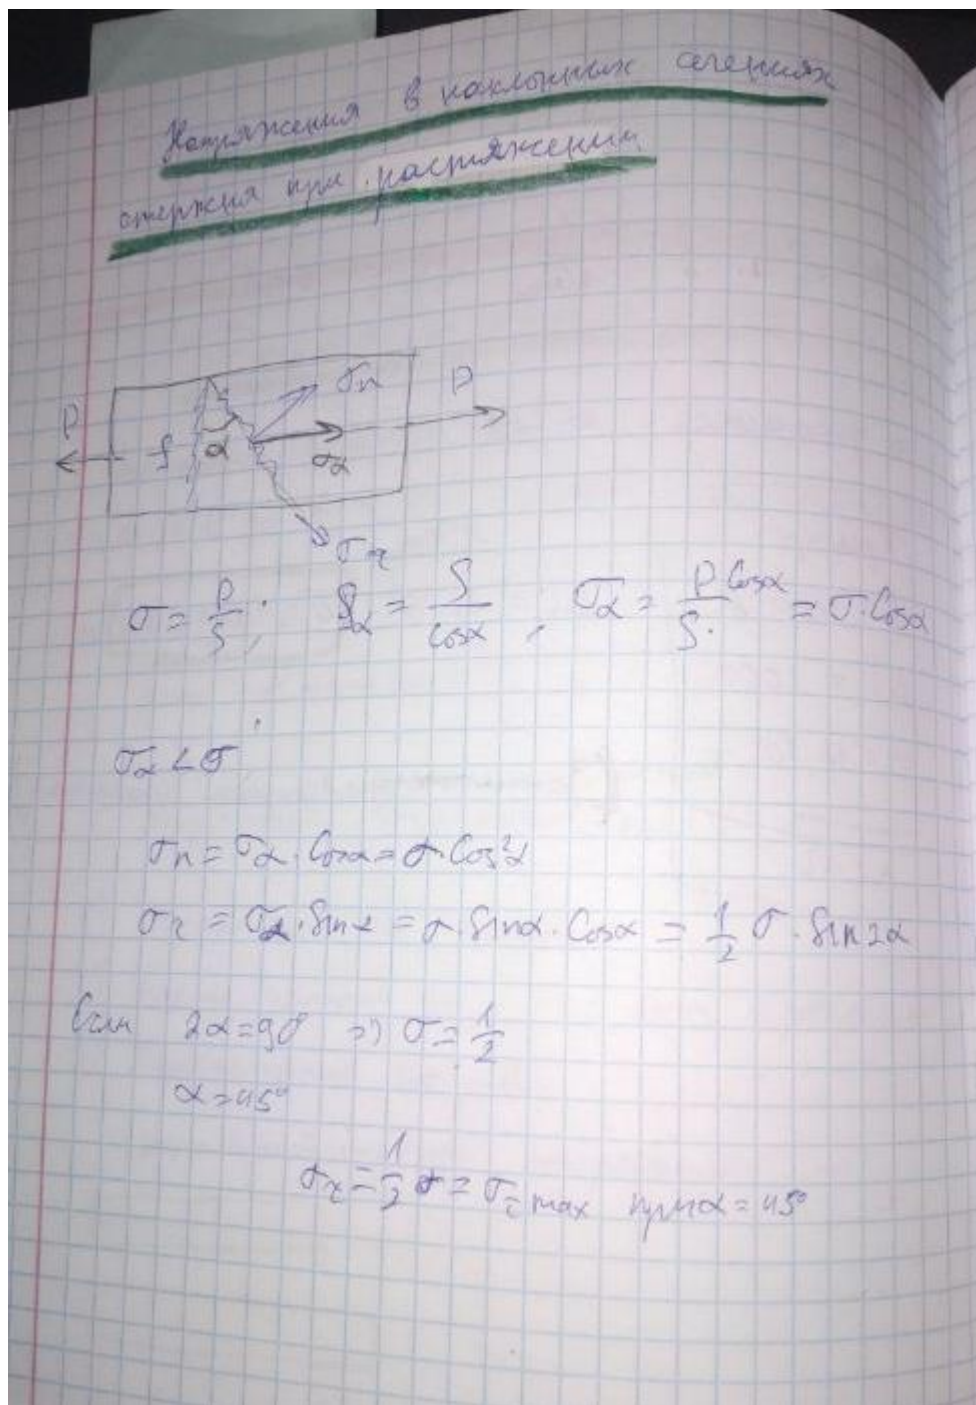 Напряжения в наклонных сечениях
стержня при растяжении
P σn P
f α σα
στ
σ = P/S; Sα = S/cosα, σα = P cosα/S = σ·cosα
σα < σ
σn = σα·cosα = σ·cos²α
στ = σα·sinα = σ·sinα·cosα = 1/2 σ·sin2α
Если 2α = 90° => σ = 1/2
α = 45°
στ = 1/2 σ = στ max при α = 45°